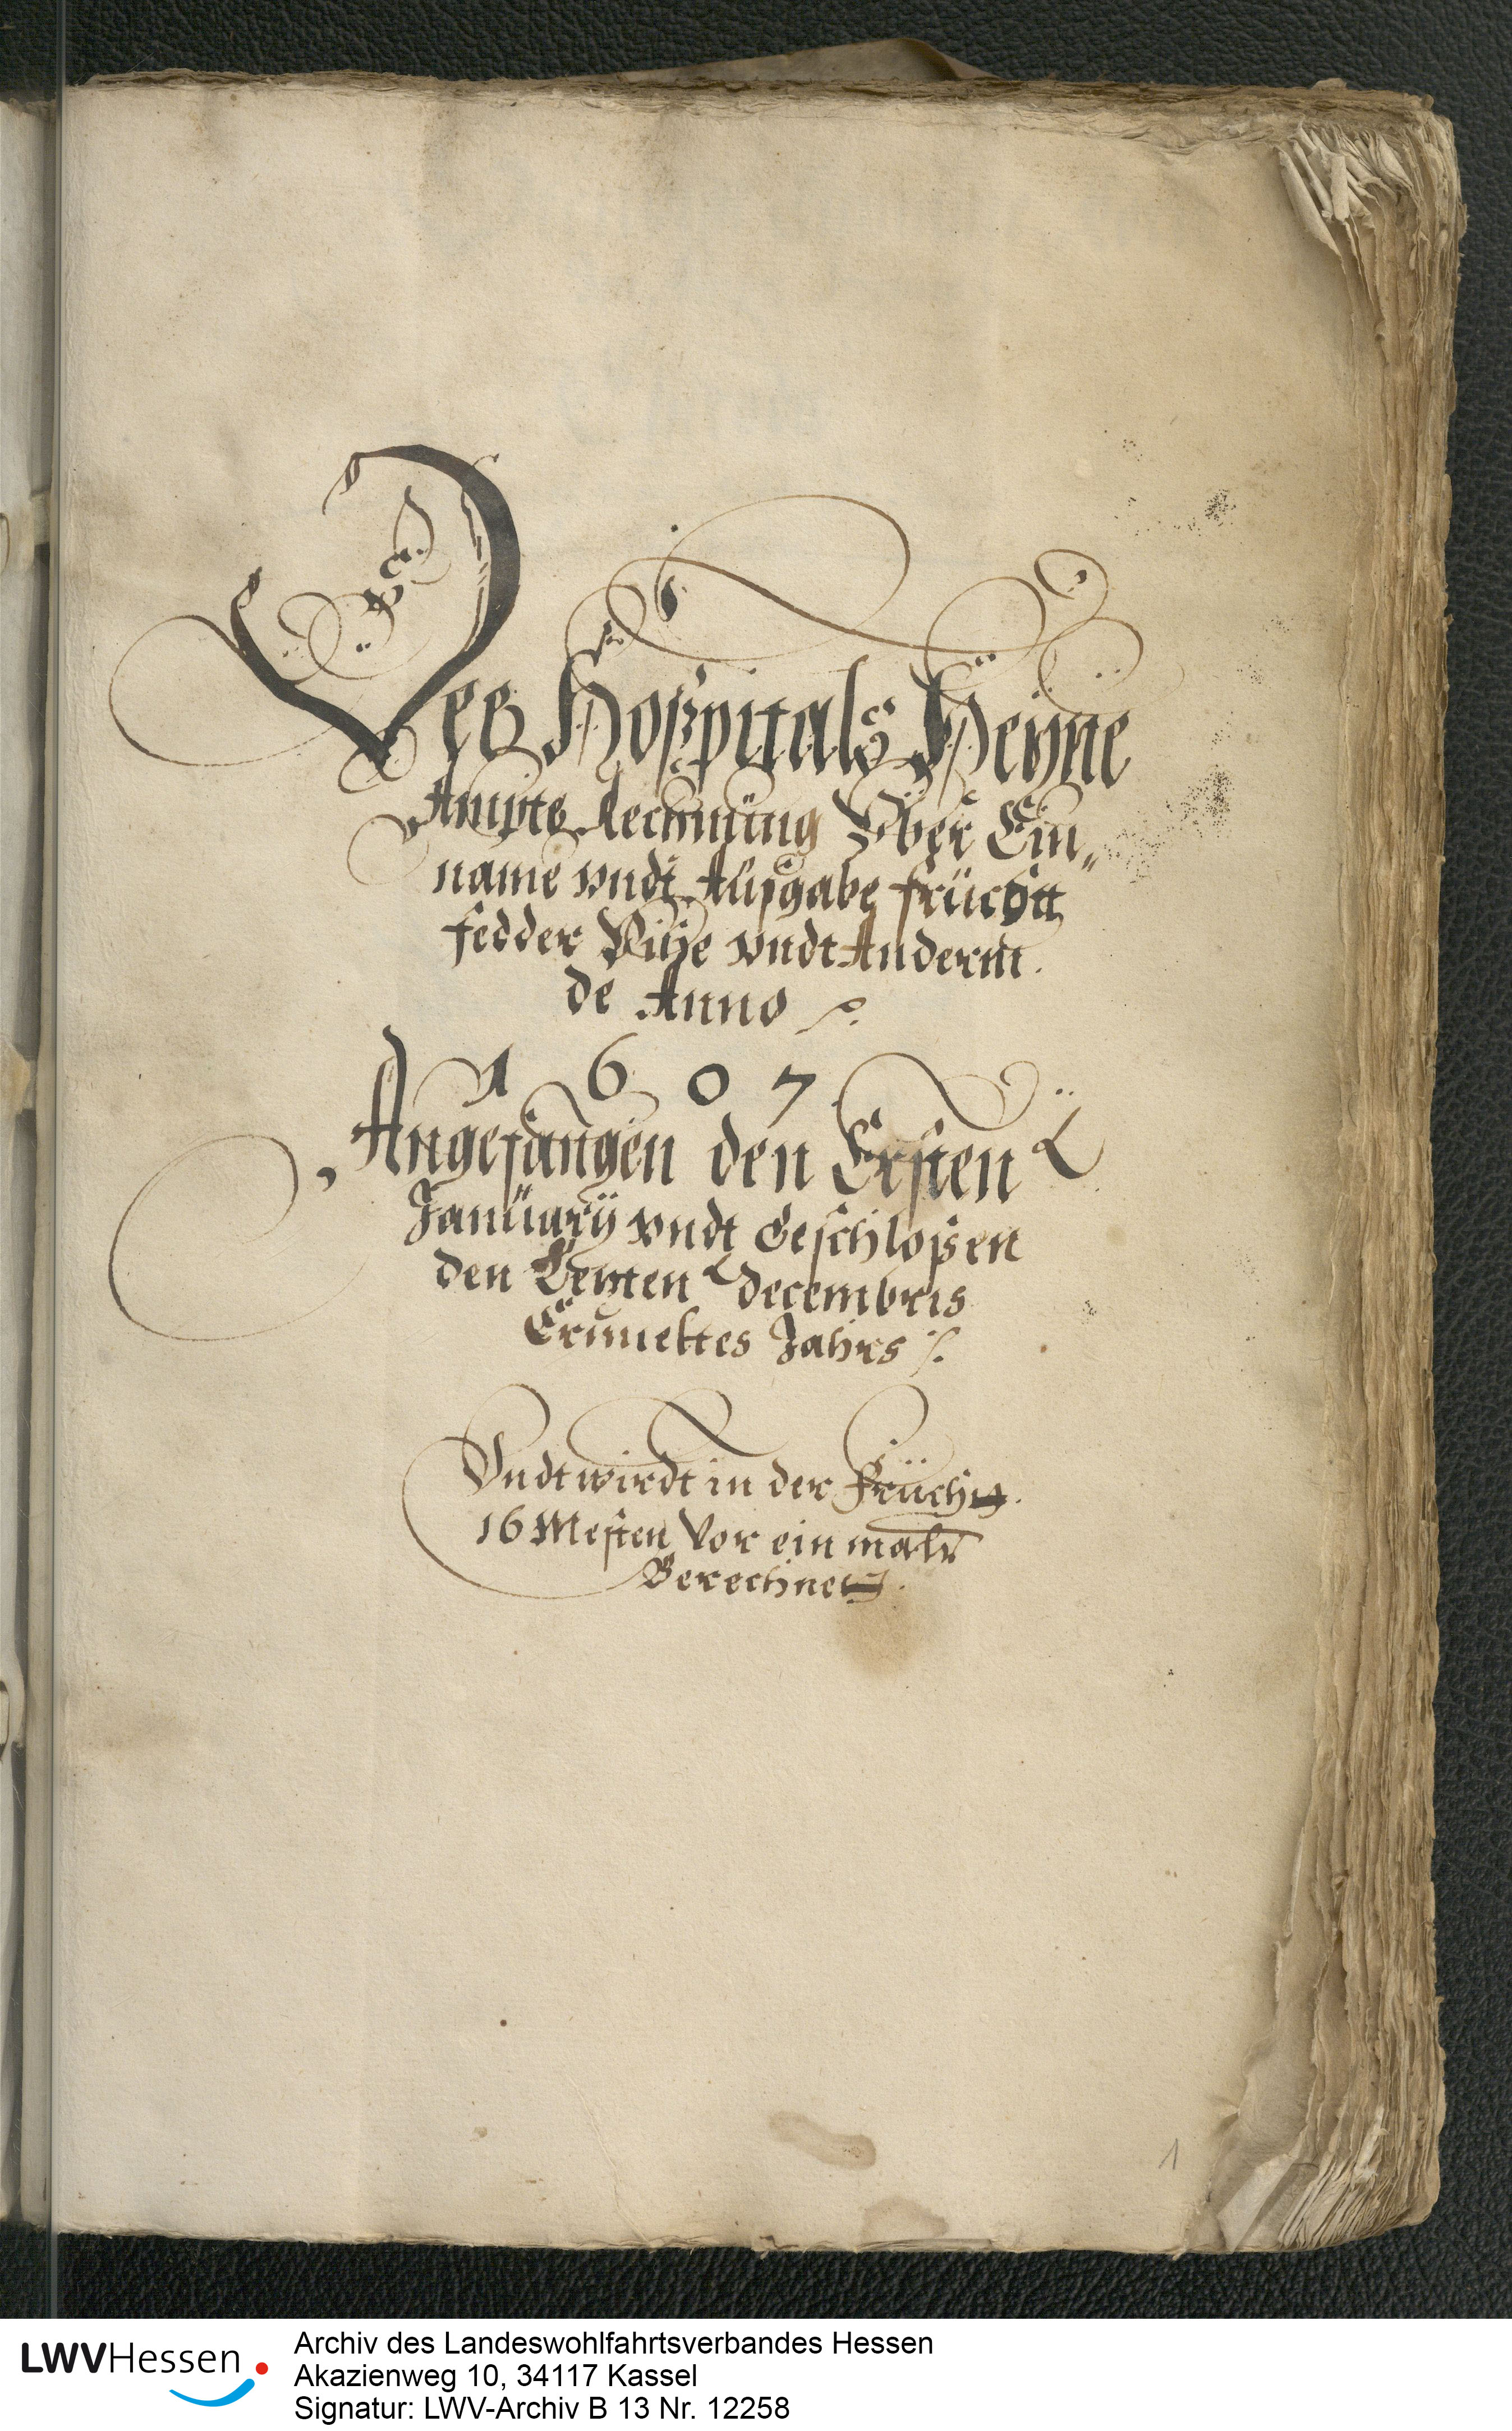 Deß Hoßpitals Heÿne
Ampts Rechnüng Vber Ein„
name vndt Außgabe früchtt
fedder Vihe vndt Anderm.
de Anno
1607
Angefangen den Ersten
Janüarÿ vndt Geschloßen
den Letzten decembris
Ermeltes Jahrs
Vndt wirdt in der Frücht
16 Mesten Vor ein maltr
Berechnet.
1
LWVHessen
Archiv des Landeswohlfahrtsverbandes Hessen
Akazienweg 10, 34117 Kassel
Signatur: LWV-Archiv B 13 Nr. 12258